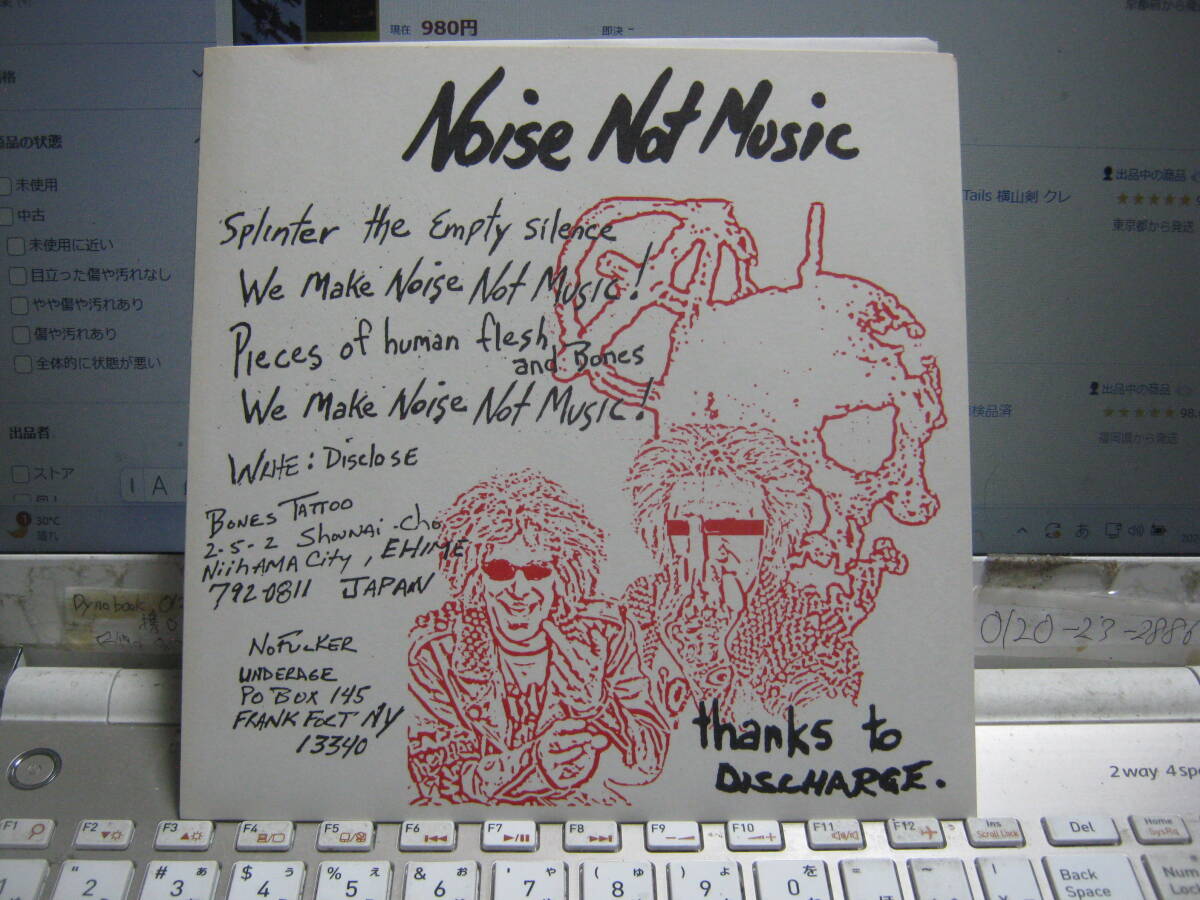 現在 980円 即決 -
商品の状態
未使用
中古
未使用に近い
目立った傷や汚れなし
やや傷や汚れあり
傷や汚れあり
全体的に状態が悪い
出品者
ストア
A
30°C
晴れ
出品中の商品
Tails 横山剣 クレ
★★★★★
東京都から発送
出品中の商品
検品済
★★★★★ 98.
福岡県から発送
あ
Noise Not Music
Splinter the Empty silence
We Make Noise Not Music!
Pieces of human flesh
and Bones
We Make Noise Not Music!
Write: Disclose
Bones Tattoo
2-5-2 Shounai-cho
Niihama City, EHIME
792-0811 JAPAN
NoFucker
UNDERAGE
PO Box 145
FRANKFORT NY
13340
thanks to
DISCHARGE.
Dynabook
0120-23-2886
2way 4sp
F1 F2 F3 F4 F5 F6 F7 F8 F9 F10 F11 F12 Ins Scroll Lock Del Home SysRq
" 2 # 3 あ $ 4 う % 5 え & 6 お ' 7 や ( 8 ゆ ) 9 よ 0 を = ほ Back Space Num Lock